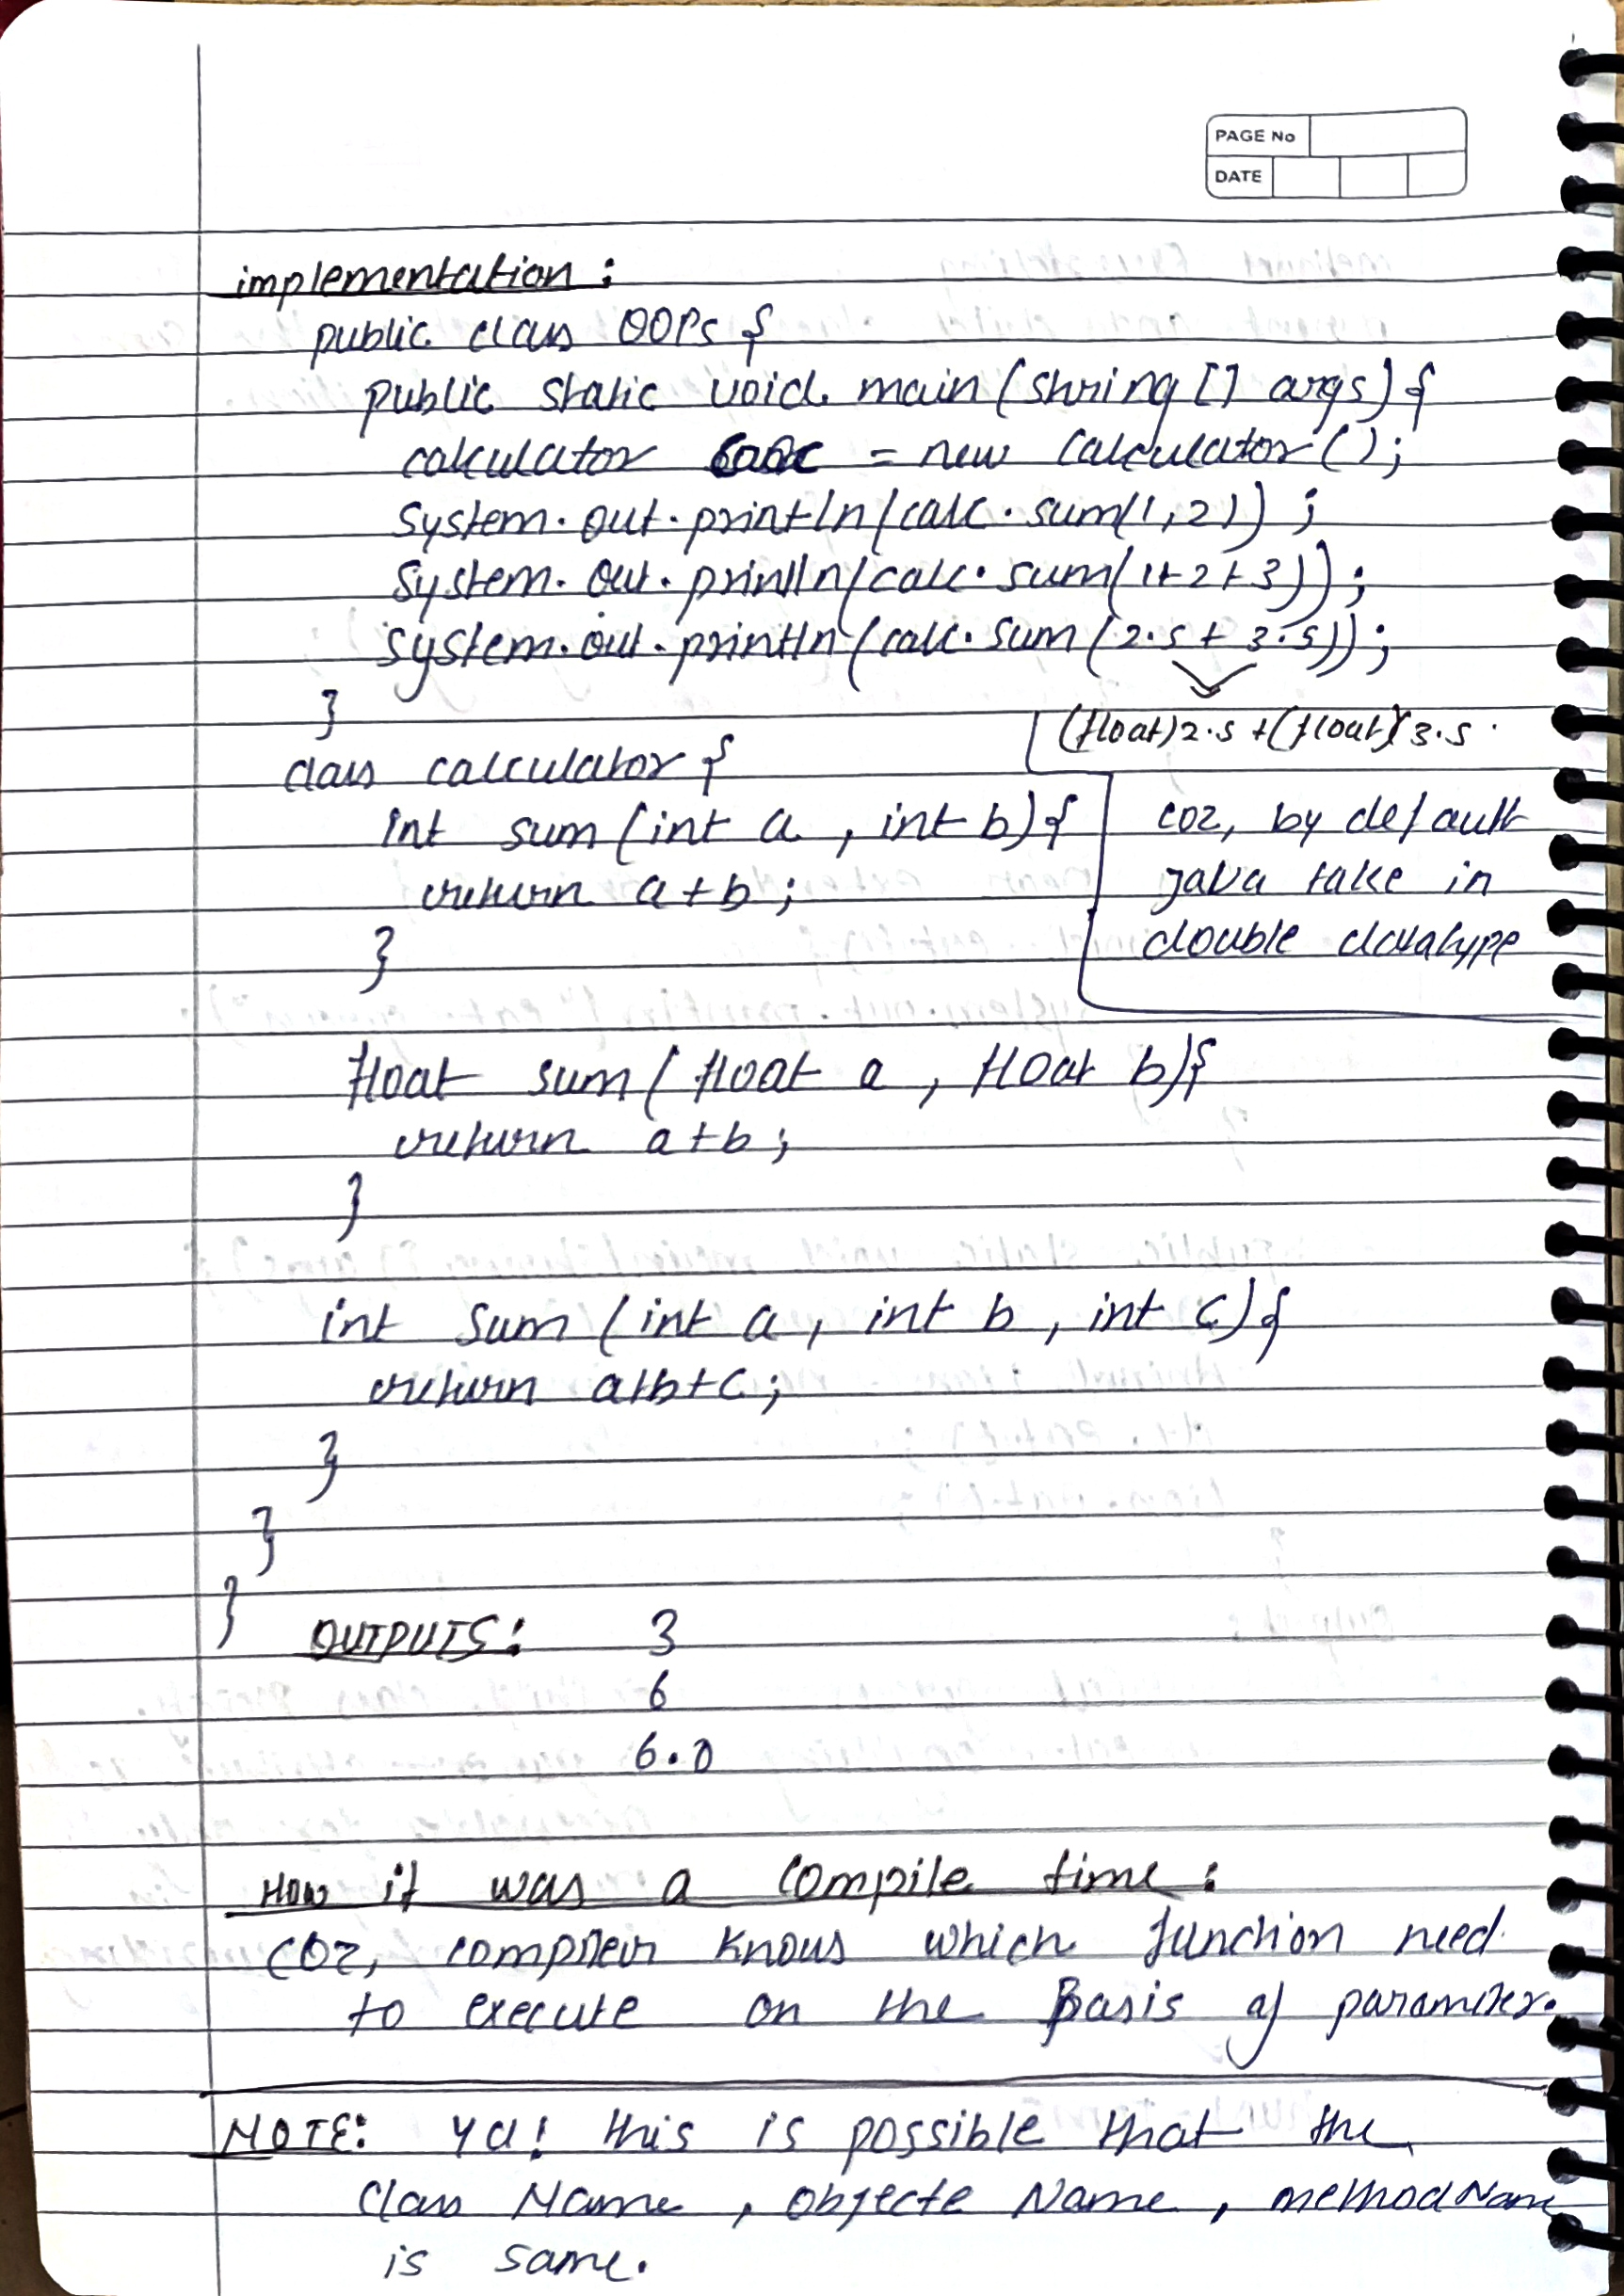 PAGE No
DATE
implementation :
public class OOPs {
public static void main (string [] args) {
calculator calc = new Calculator () ;
System.out.println (calc.sum(1,2)) ;
System.out.println (calc.sum(1+2+3)) ;
System.out.println (calc.sum (2.5 + 3.5)) ;
}
(float)2.5 + (float)3.5 .
class calculator {
int sum (int a , int b) {
return a+b ;
}
coz, by default
java take in
double datatype
float sum ( float a , float b) {
return a+b ;
}
int sum (int a , int b , int c) {
return a+b+c ;
}
}
}
OUTPUTS : 3
6
6.0
How it was a compile time :
coz, compiler knows which function need
to execute on the Basis of parameter.
NOTE: ya! this is possible that the
class Name , objecte Name , method Name
is same.